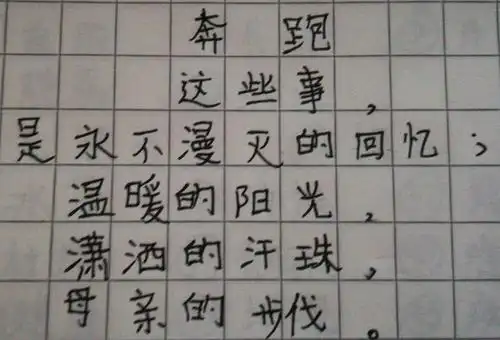 奔跑
这些事，
是永不漫灭的回忆；
温暖的阳光，
潇洒的汗珠，
母亲的步伐。